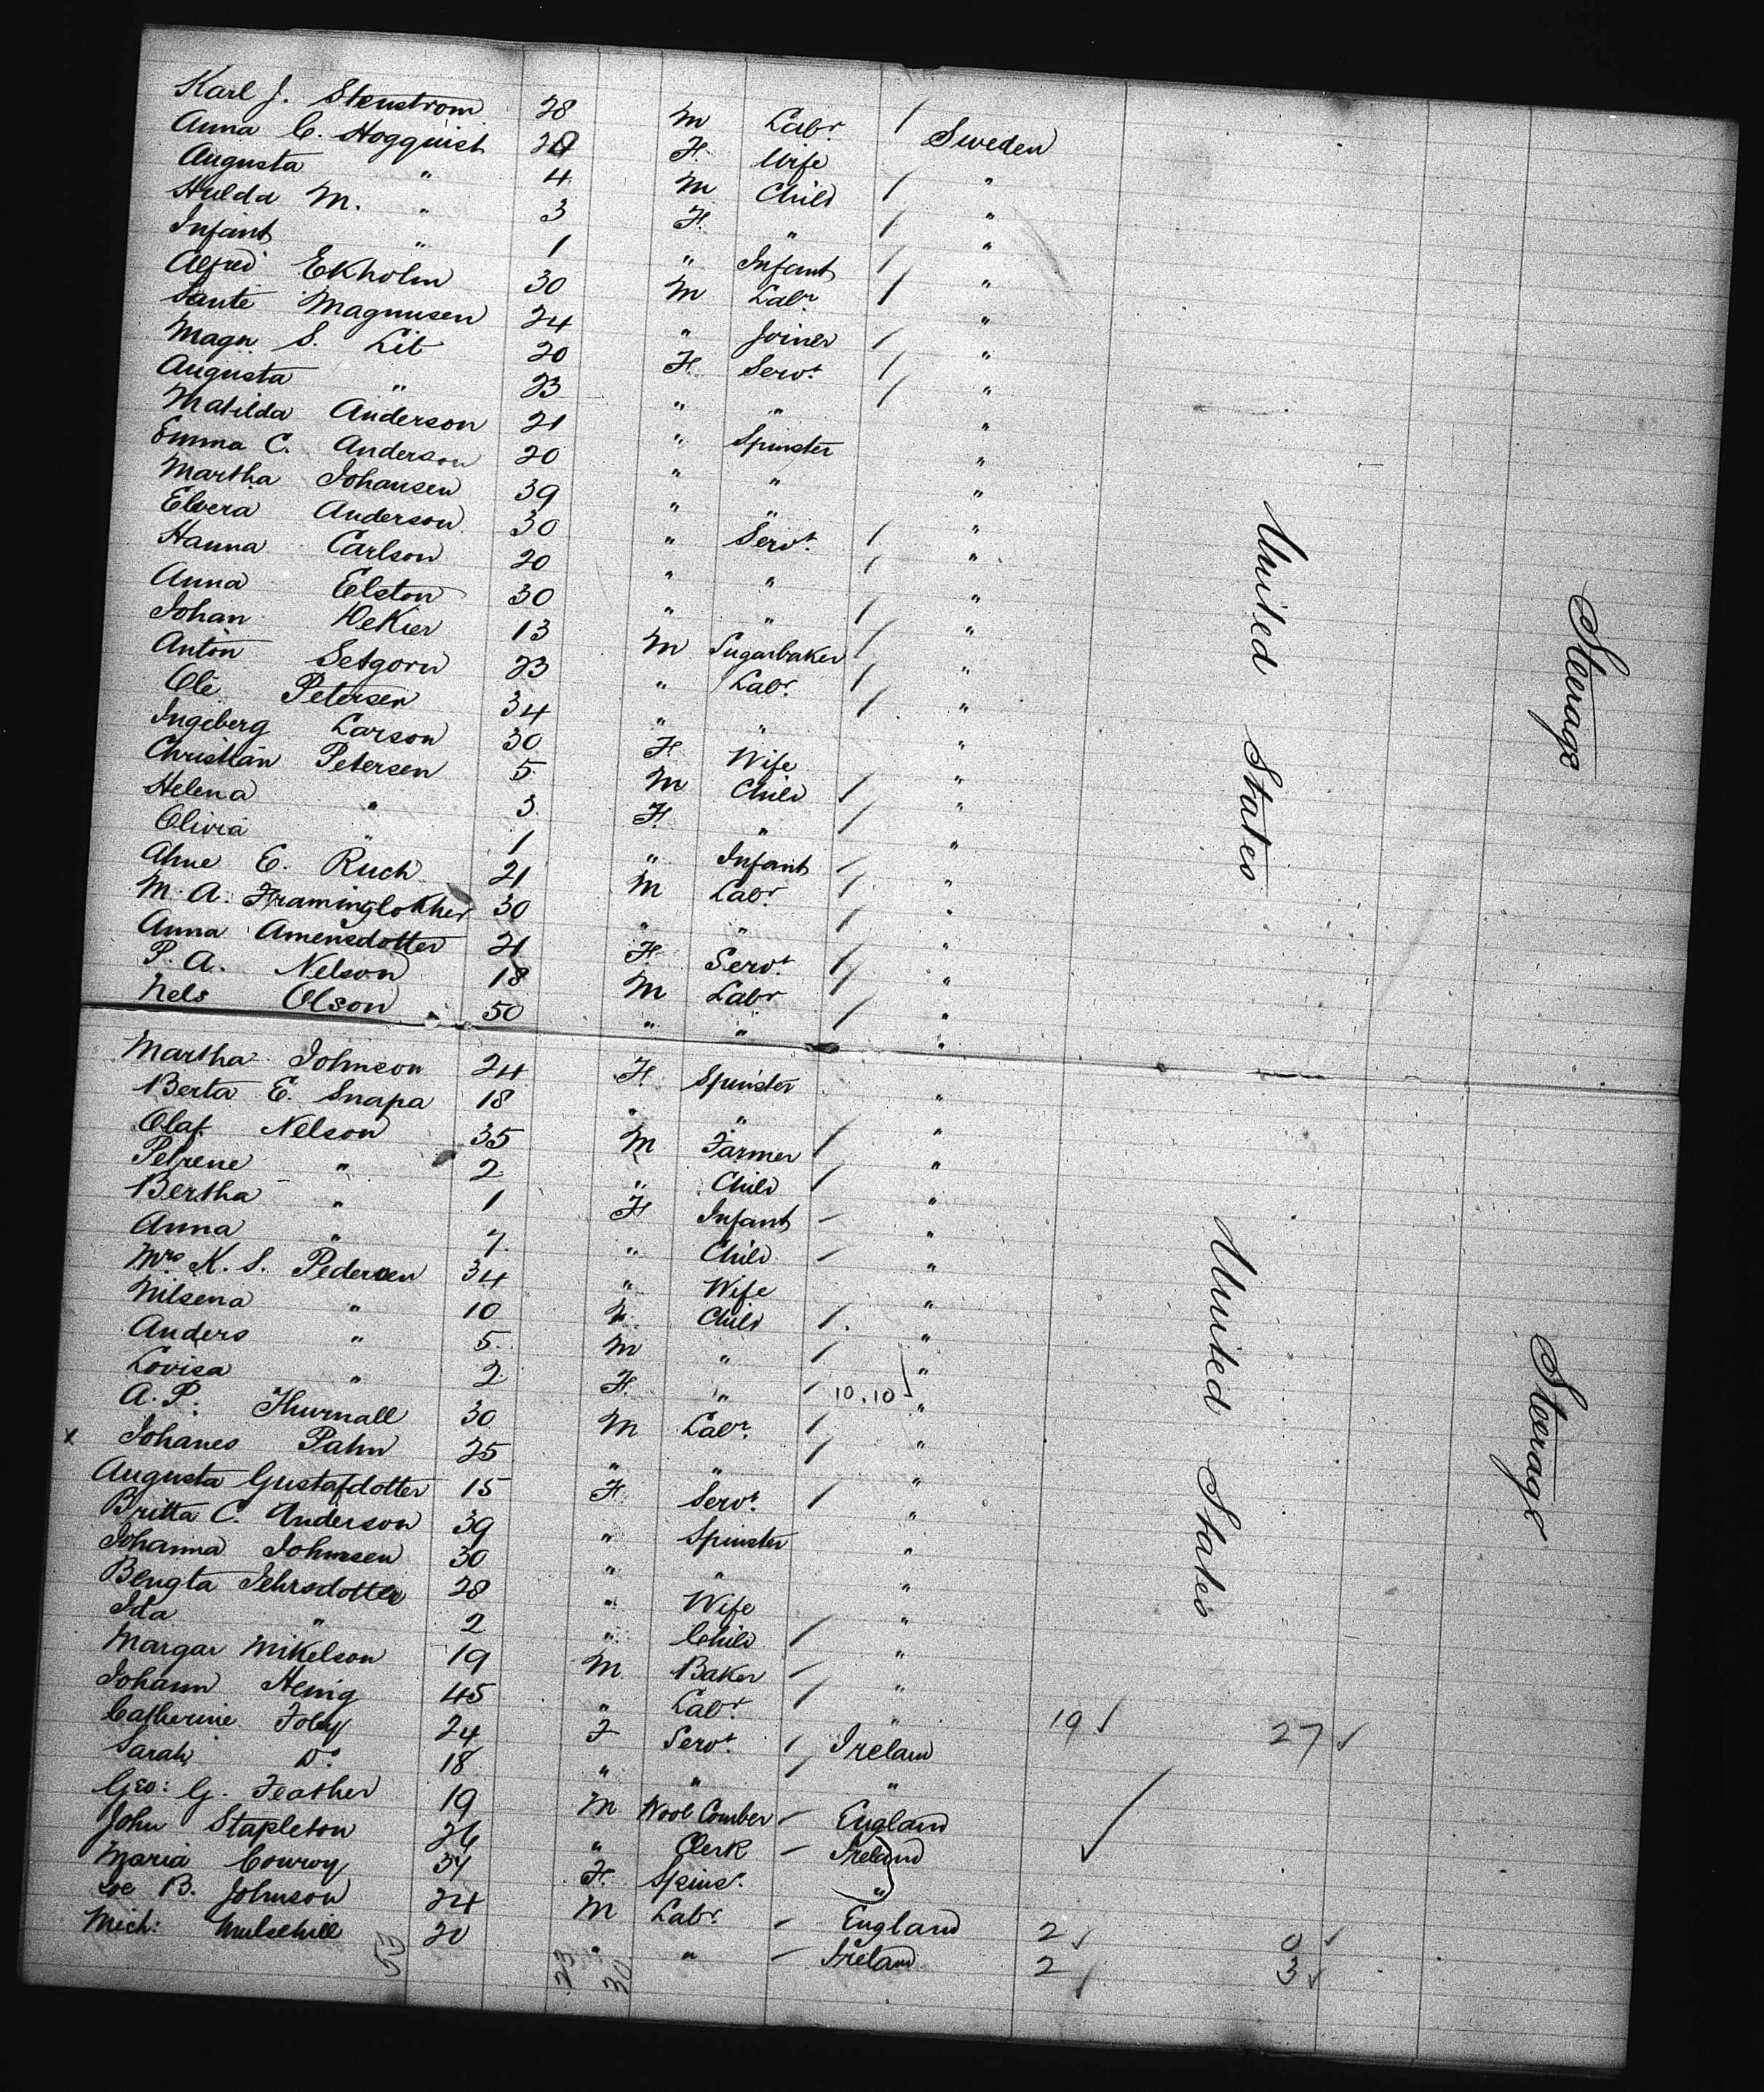 Karl J. Stenstrom 28 M Labr / Sweden
Anna C. Hogquist 29 F. Wife "
Augusta " 4 M Child / "
Hulda M. " 3 F. " / "
Infant " 1 " Infant / "
Alfred Ekholm 30 M Labr / "
Sante Magnusen 24 " Joiner / "
Magn S. Lit 20 F. Servt / "
Augusta " 23 " " / "
Matilda Anderson 21 " Spinster "
Emma C. Anderson 20 " " "
Martha Johansen 39 " " "
Elvera Anderson 30 " Servt. / "
Hanna Carlson 20 " " / "
Anna Elston 30 " " / "
Johan DeKier 13 M Sugarbaker / "
Anton Setgorn 23 " Labr. / "
Ole Petersen 34 " " / "
Ingeberg Larson 30 F. Wife "
Christian Petersen 5 M Child / "
Helena " 3 F. " / "
Olivia " 1 " Infant / "
Ahne E. Ruch 21 M Labr. / "
M. A. Framinglokher 30 " " / "
Anna Amensdotter 21 F. Servt. / "
P. A. Nelson 18 M Labr / "
Nels Olson 50 " " / "
United States
Steerage
Martha Johnson 24 F. Spinster "
Berta E. Snapa 18 " " "
Olaf Nelson 35 M Farmer / "
Petrene " 2 " Child / "
Bertha " 1 F Infant / "
Anna " 7 " Child / "
Mrs K. S. Pedersen 34 " Wife "
Nilsena " 10 " Child / "
Anders " 5 M " / "
Lovisa " 2 F. " / 10.10 "
A. P. Thurnall 30 M Labr. / "
x Johanes Pahn 25 " " / "
Augusta Gustafdotter 15 F. Servt. / "
Britta C. Anderson 39 " Spinster "
Johanna Johnssen 30 " " "
Bengta Jehrsdotter 28 " Wife "
Ida " 2 " Child / "
Margar Mikelson 19 M Baker / "
Johann Henig 45 " Labr. / " 19 ✓ 27 ✓
Catherine Foley 24 F Servt. / Ireland
Sarah Do 18 " " / "
Geo: G. Feather 19 M Wool Comber / England
John Stapleton 26 " Clerk / Ireland
Maria Conroy 34 F. Spins. "
B. Johnson 24 M Labr. / England 2 ✓ 0 ✓
Mich: Mulsehill 20 " " / Ireland 2 ✓ 3 ✓
53 23 30
United States
Steerage